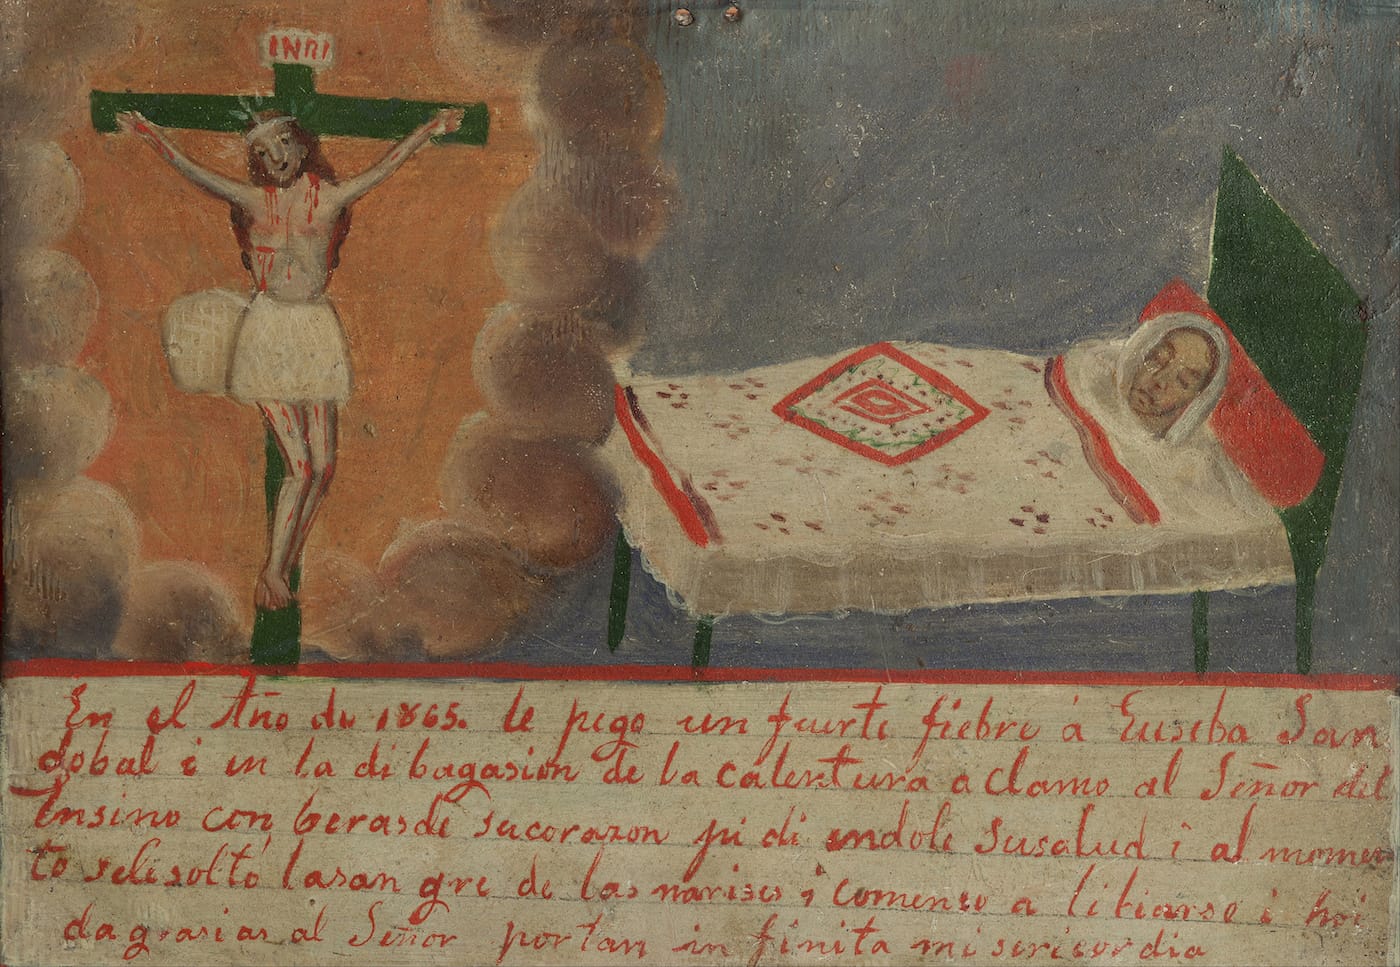 INRI
En el Año de 1865. le pego un fuerte fiebre á Euseba San
dobal i en la di bagasion de la calentura a clamo al Señor del
Ensino con beras de su corazon pi di endole su salud i al momen
to sele solto la san gre de las narises i comenzo a libiarse i hoi
da grasias al Señor por tan in finita mi sericordia